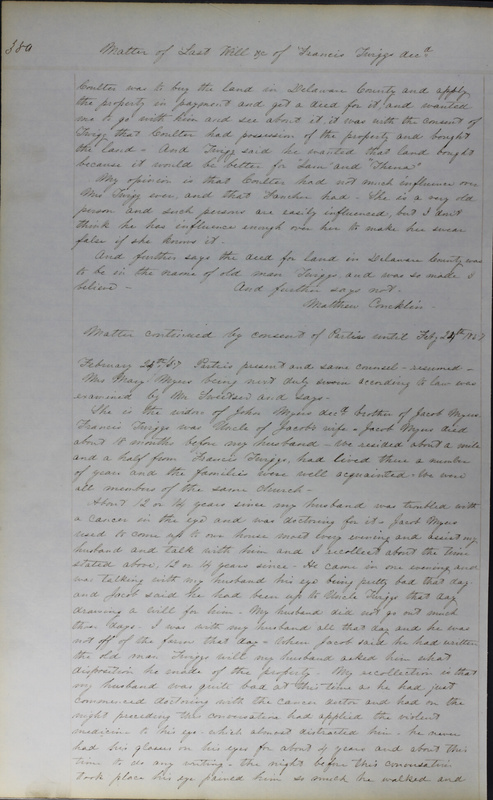 380
Matter of Last Will &c of Francis Twiggs decd
Coulter was to buy the land in Delaware County and apply
the property in payment and get a deed for it, and wanted
me to go with him and see about it, it was with the consent of
Twigg that Coulter had possession of the property and bought
the land - And Twigg said he wanted that land bought
because it would be better for "Sam" and "Thena"
My opinion is that Coulter had not much influence over
Mrs Twigg ever, and that Fancher had - She is a very old
person and such persons are easily influenced, but I dont
think he has influence enough over her to make her swear
false if she knows it -
And further says the deed for land in Delaware County was
to be in the name of old man Twiggs, and was so made I
believe - And further says not -
Matthew Concklin -
Matter continued by consent of Parties until Feby 24th 1857
February 24th /57 Parties present and same counsel - resumed -
Mrs Mary Myers being next duly sworn according to law was
examined by Mr and says -
She is the widow of John Myers decd brother of Jacob Myers
Francis Twiggs was Uncle of Jacobs wife - Jacob Myers died
about 8 months before my husband - We resided about a mile
and a half from Francis Twiggs, had lived there a number
of years and the families were well acquainted - We were
all members of the same church -
About 12 or 14 years since my husband was troubled with
a cancer in the eye and was doctoring for it - Jacob Myers
used to come up to our house most every evening and assist my
husband and talk with him and I recollect about the time
stated above, 12 or 14 years since - He came in one evening and
was talking with my husband his eye being pretty bad that day
and Jacob said he had been up to Uncle Twiggs that day
drawing a will for him - My husband did not go out much
those days - I was with my husband all that day and he was
not off of the farm that day - When Jacob said he had written
the old man Twiggs will my husband asked him what
disposition he made of the property - My recollection is that
my husband was quite bad at this time as he had just
commenced doctoring with the cancer doctor and had on the
night preceding this conversation had applied the violent
medicine to his eye - which almost distracted him - he never
had his glasses on his eyes for about 4 years and about this
time to do any writing - the night before this conversation
took place his eye pained him so much he walked and